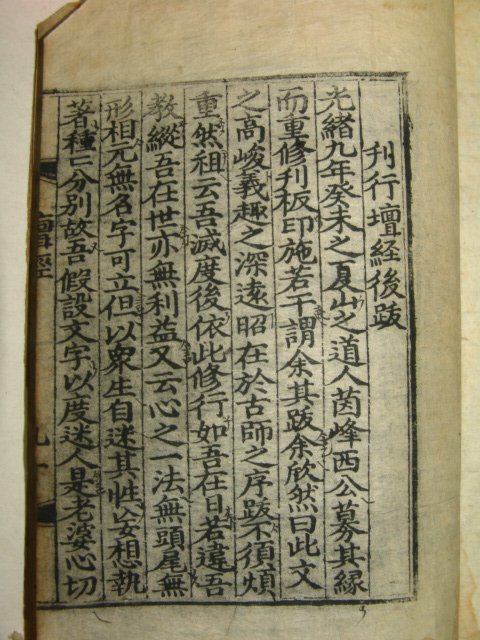 刊行壇経後跋
光緒九年癸未之夏山之道人茵峰西公募其緣
而重修刊板印施若干謂余其跋余欣然曰此文
之高峻義趣之深遠昭在於古師之序跋不須煩
重然祖云吾滅度後依此修行如吾在日若違吾
教縱吾在世亦無利益又云心之一法無頭尾無
形相元無名字可立但以衆生自迷其性妄想執
著種〻分別故吾假設文字以度迷人是老婆心切
壇經